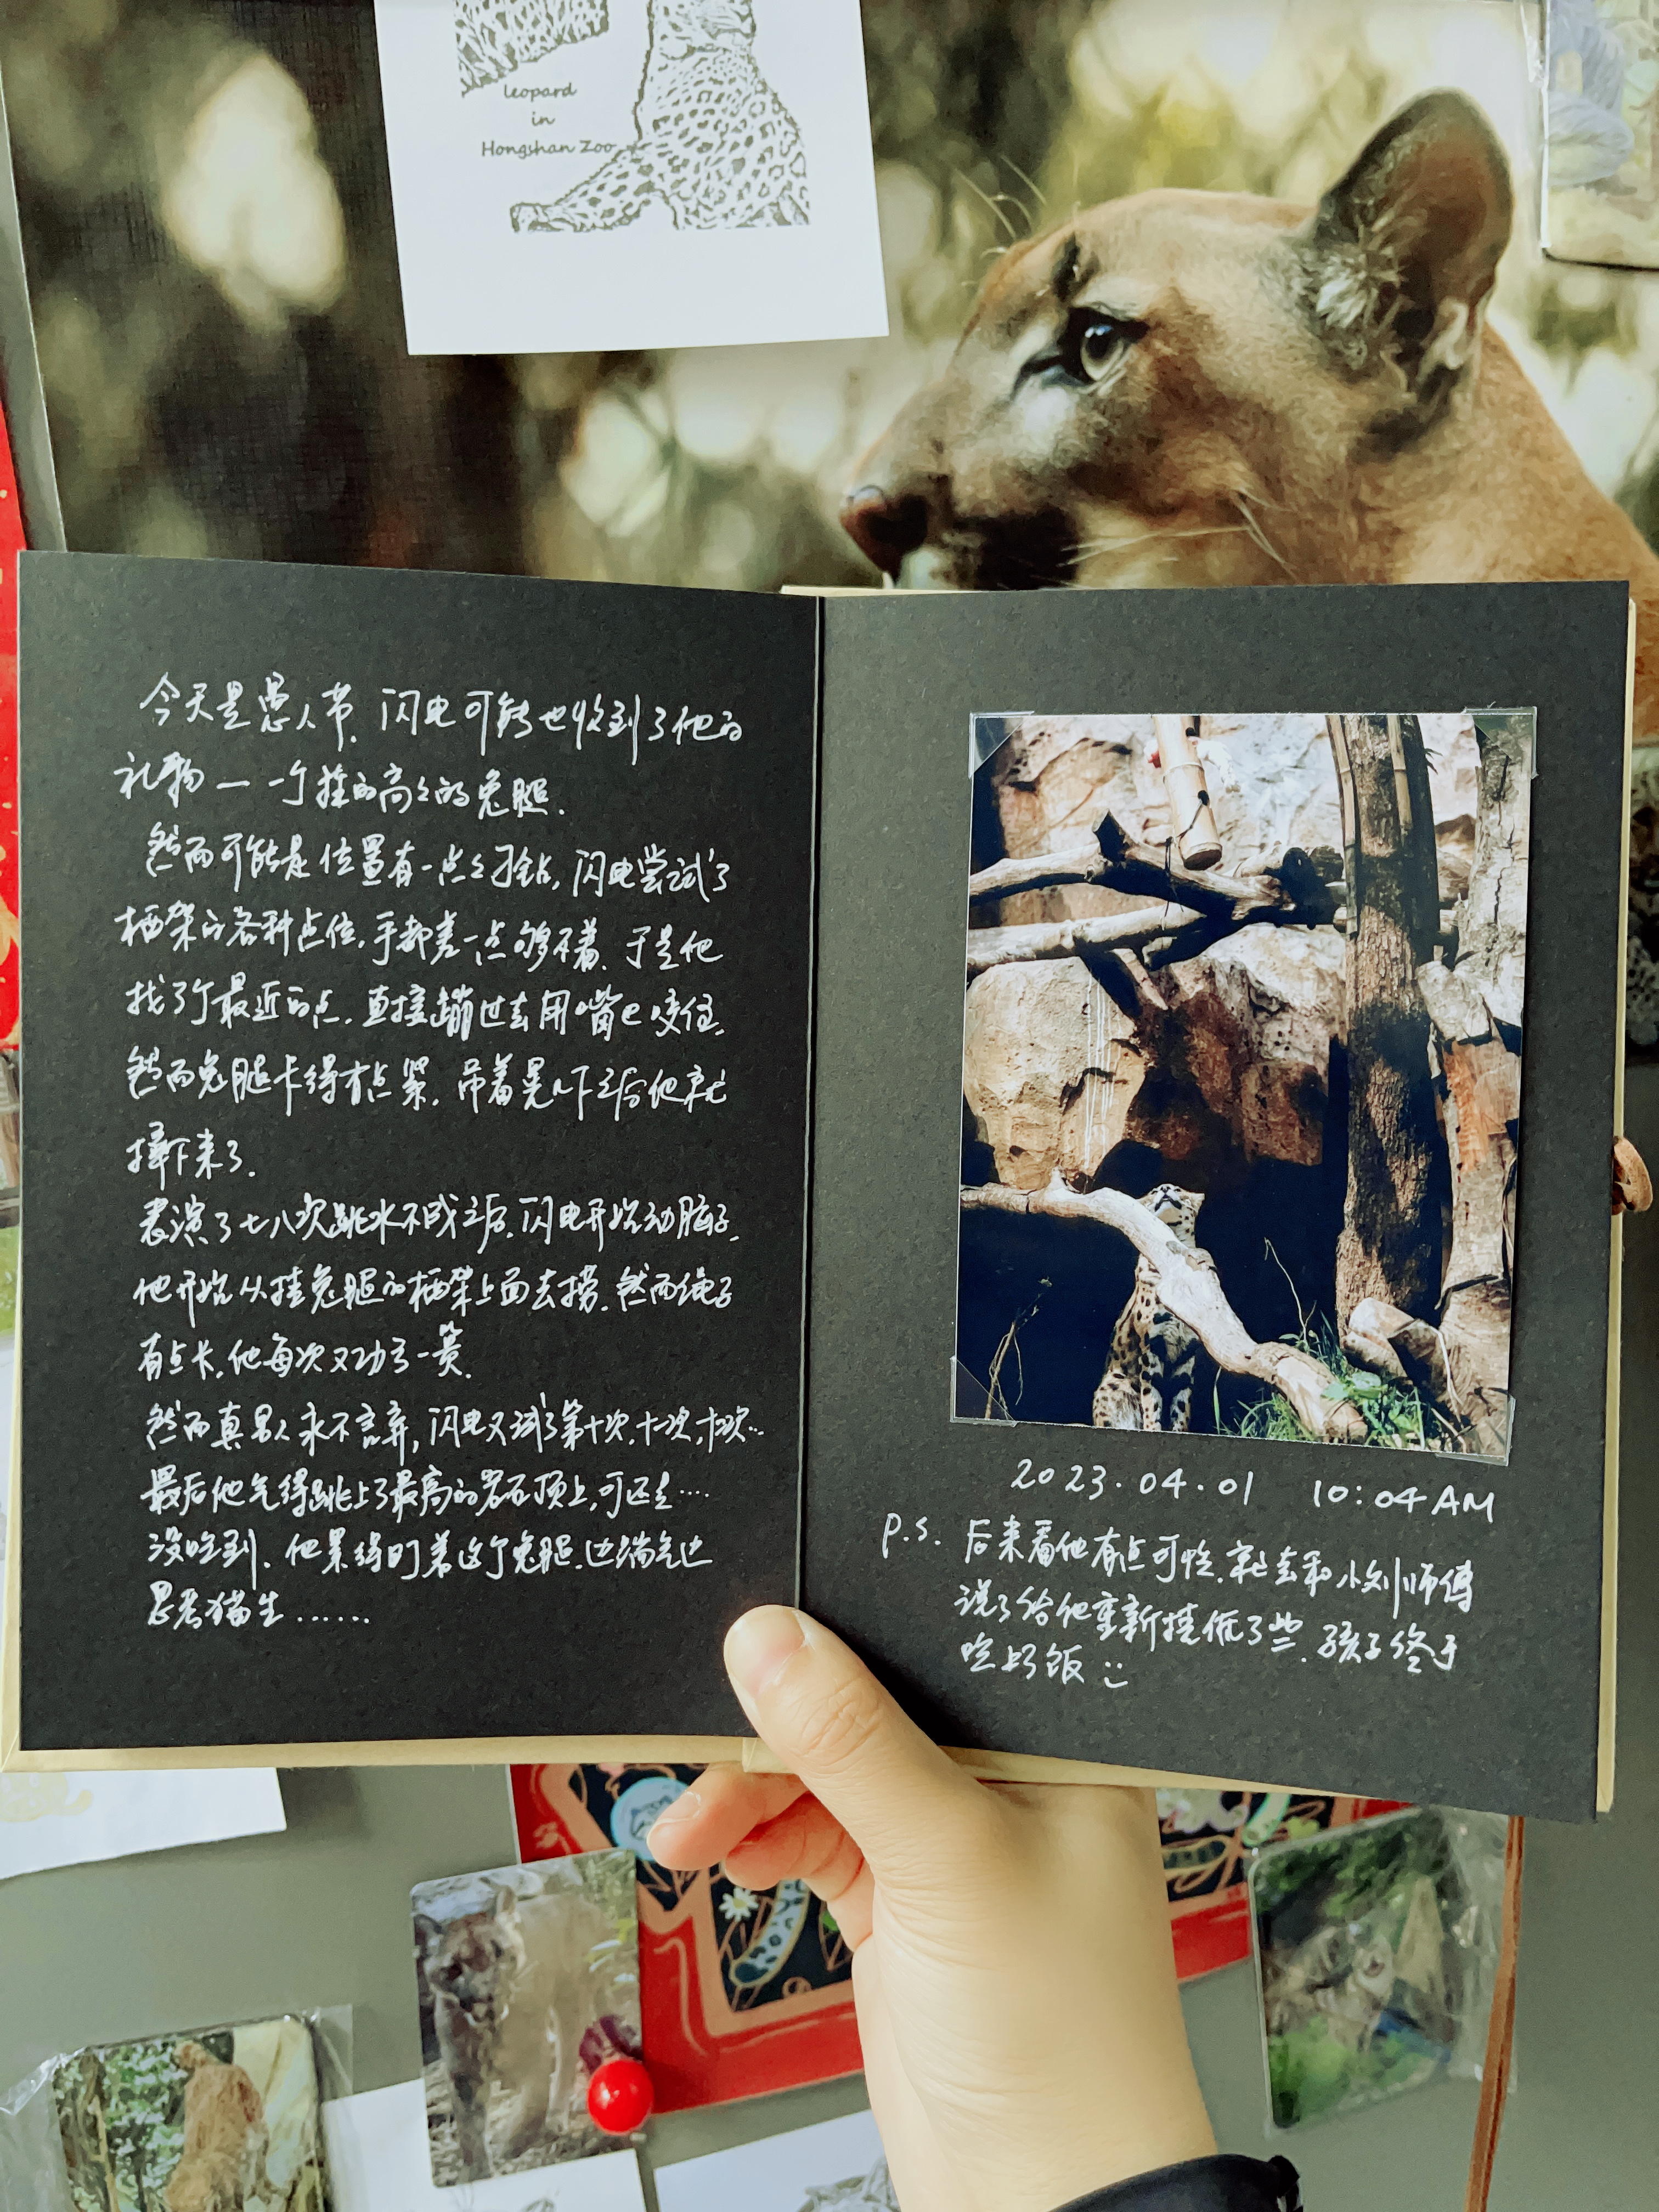 leopard
in
Hongshan Zoo
今天是愚人节，闪电可能也收到了他的
礼物——一个挂的高高的兔腿.
然而可能是位置有一点点刁钻，闪电尝试了
栖架的各种点位，手都差一点够不着，于是他
找了个最近的点，直接蹦过去用嘴巴咬住，
然而兔腿卡得有点紧，吊着晃一下之后他就
摔下来了.
表演了七八次跳水不成之后，闪电开始动脑子，
他开始从挂兔腿的栖架上面去捞，然而绳子
有点长，他每次又功亏一篑.
然而真男人永不言弃，闪电又试了第十次，十一次，十二次…
最后他气得跳上了最高的岩石顶上，可还是……
没吃到，他累得盯着这个兔腿，边喘气边
思考猫生……
2023.04.01 10:04AM
P.S. 后来看他有点可怜，就去和小刘师傅
说了给他重新挂低了些，孩子终于
吃上好饭